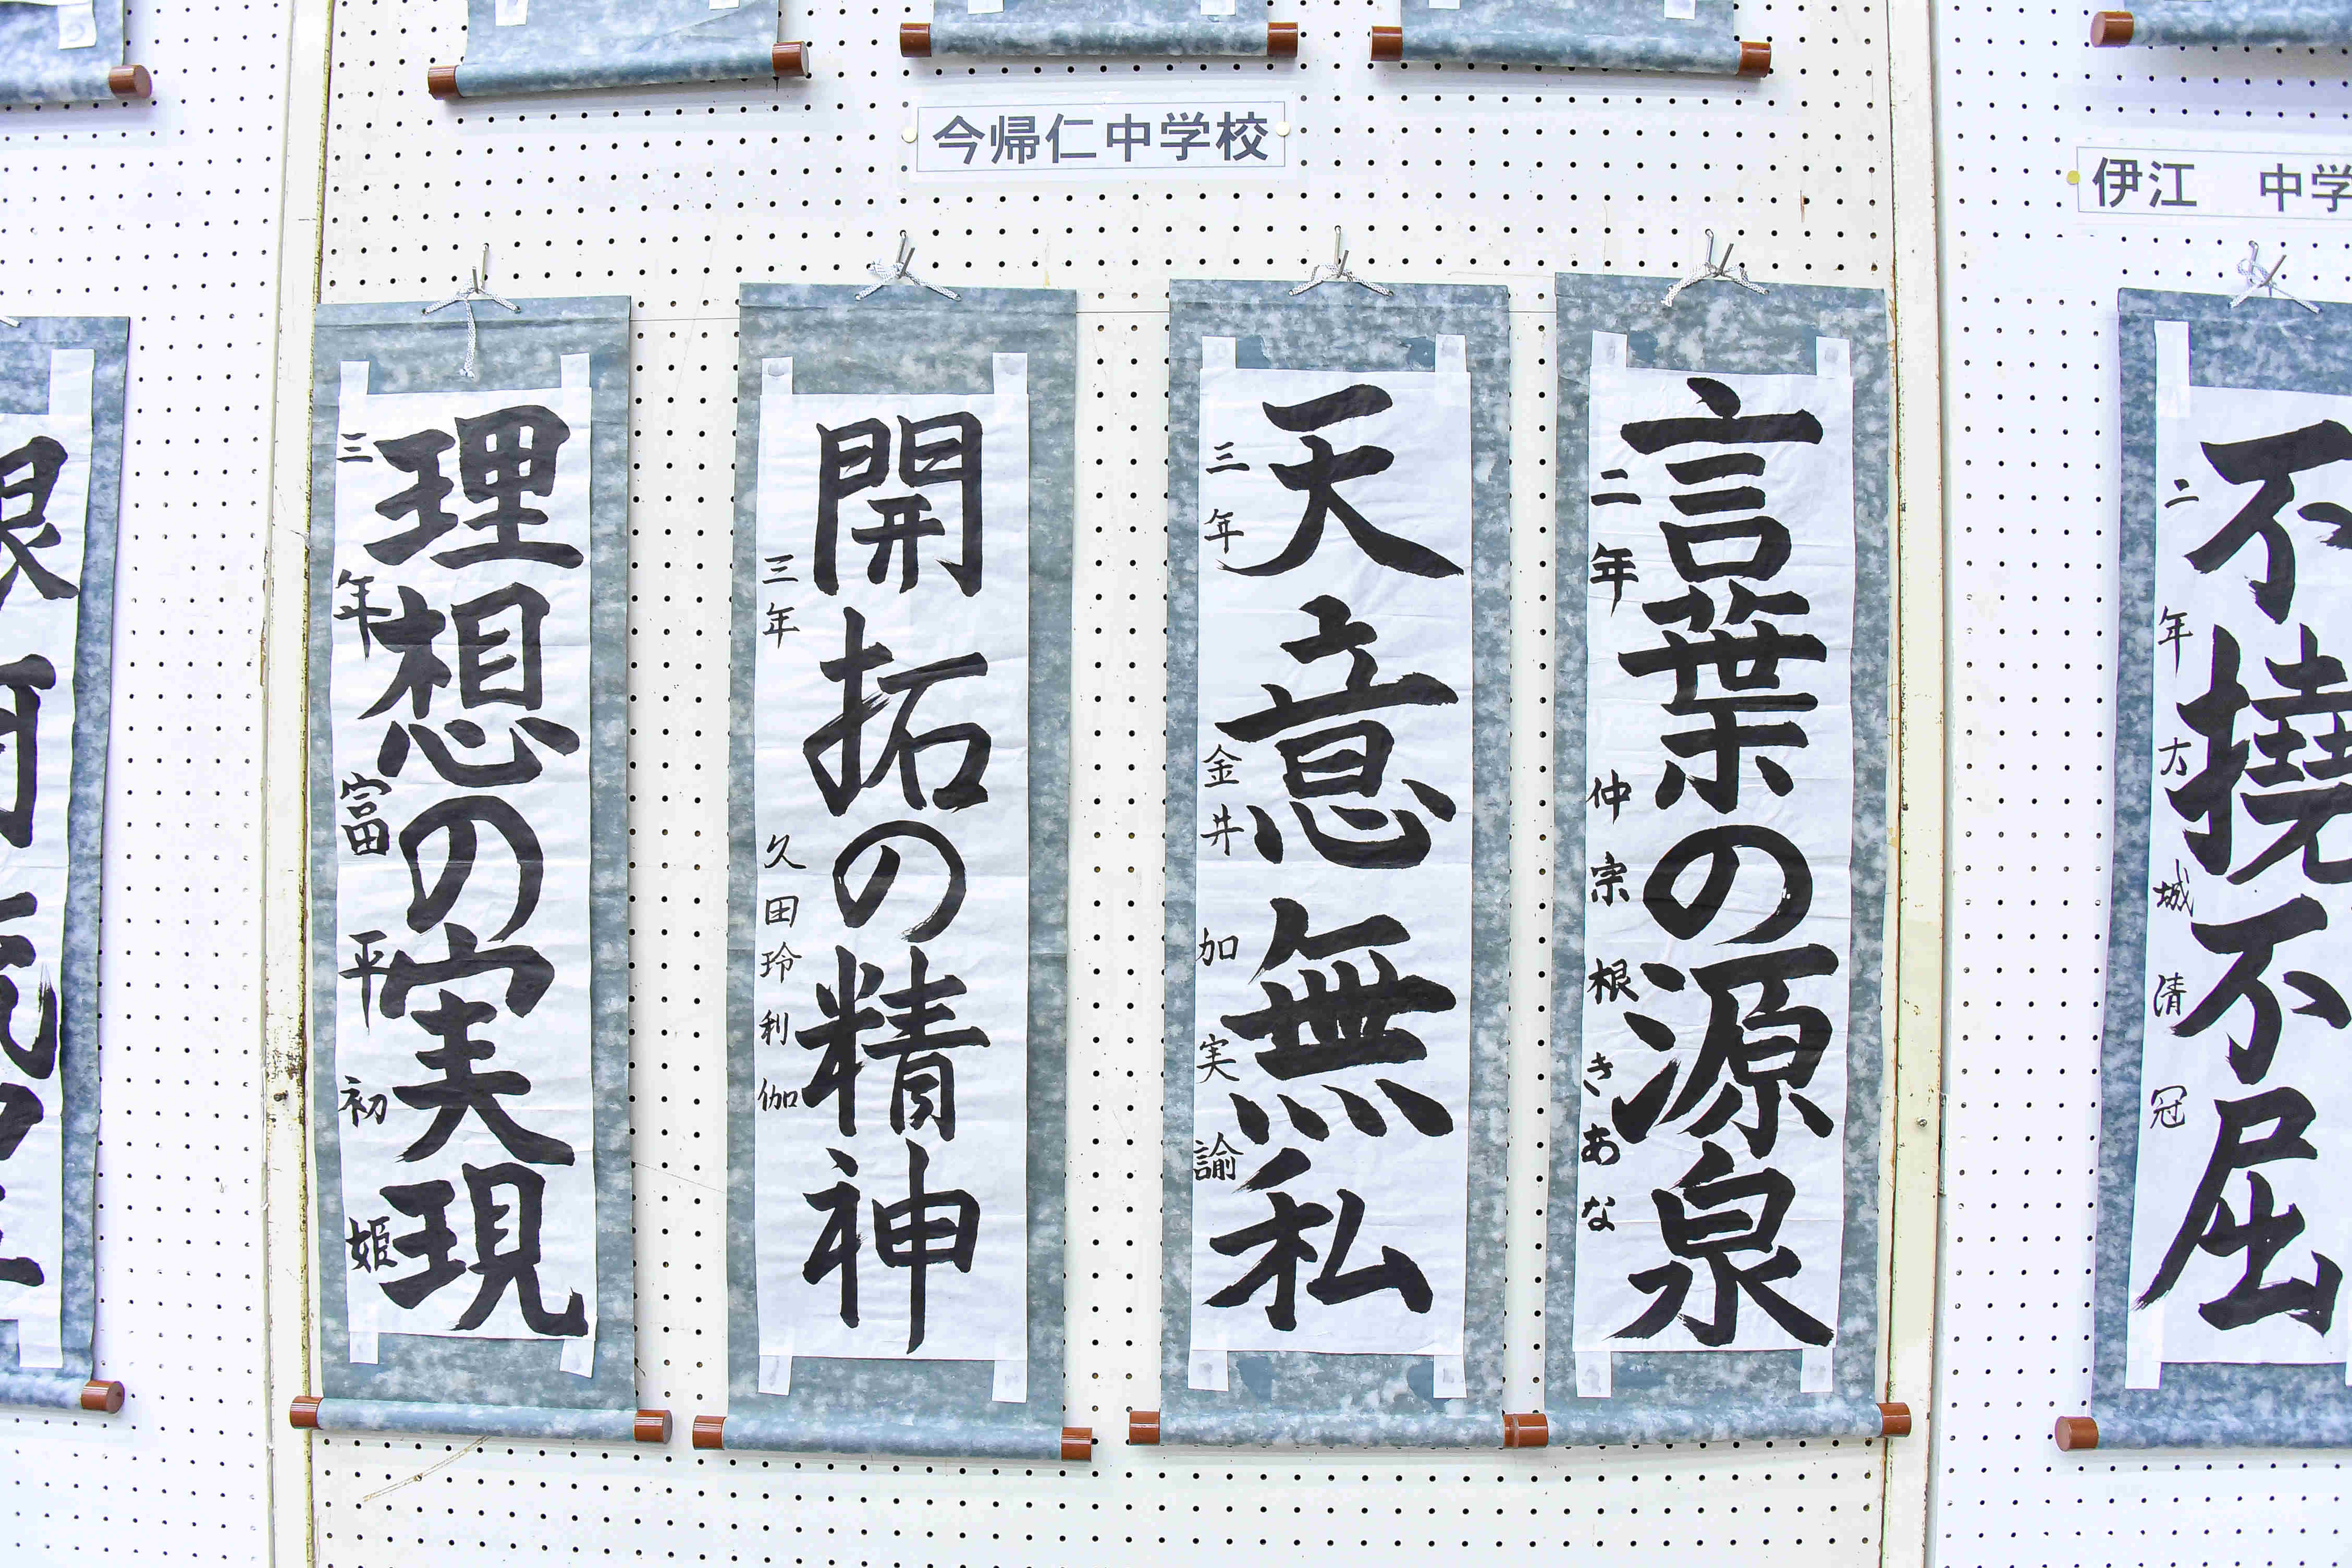 今帰仁中学校
伊江 中学
言葉の源泉
二年 仲宗根きあな
天意無私
三年 金井加実諭
開拓の精神
三年 久田玲利伽
理想の実現
三年 富平初姫
不撓不屈
二年 大城清冠